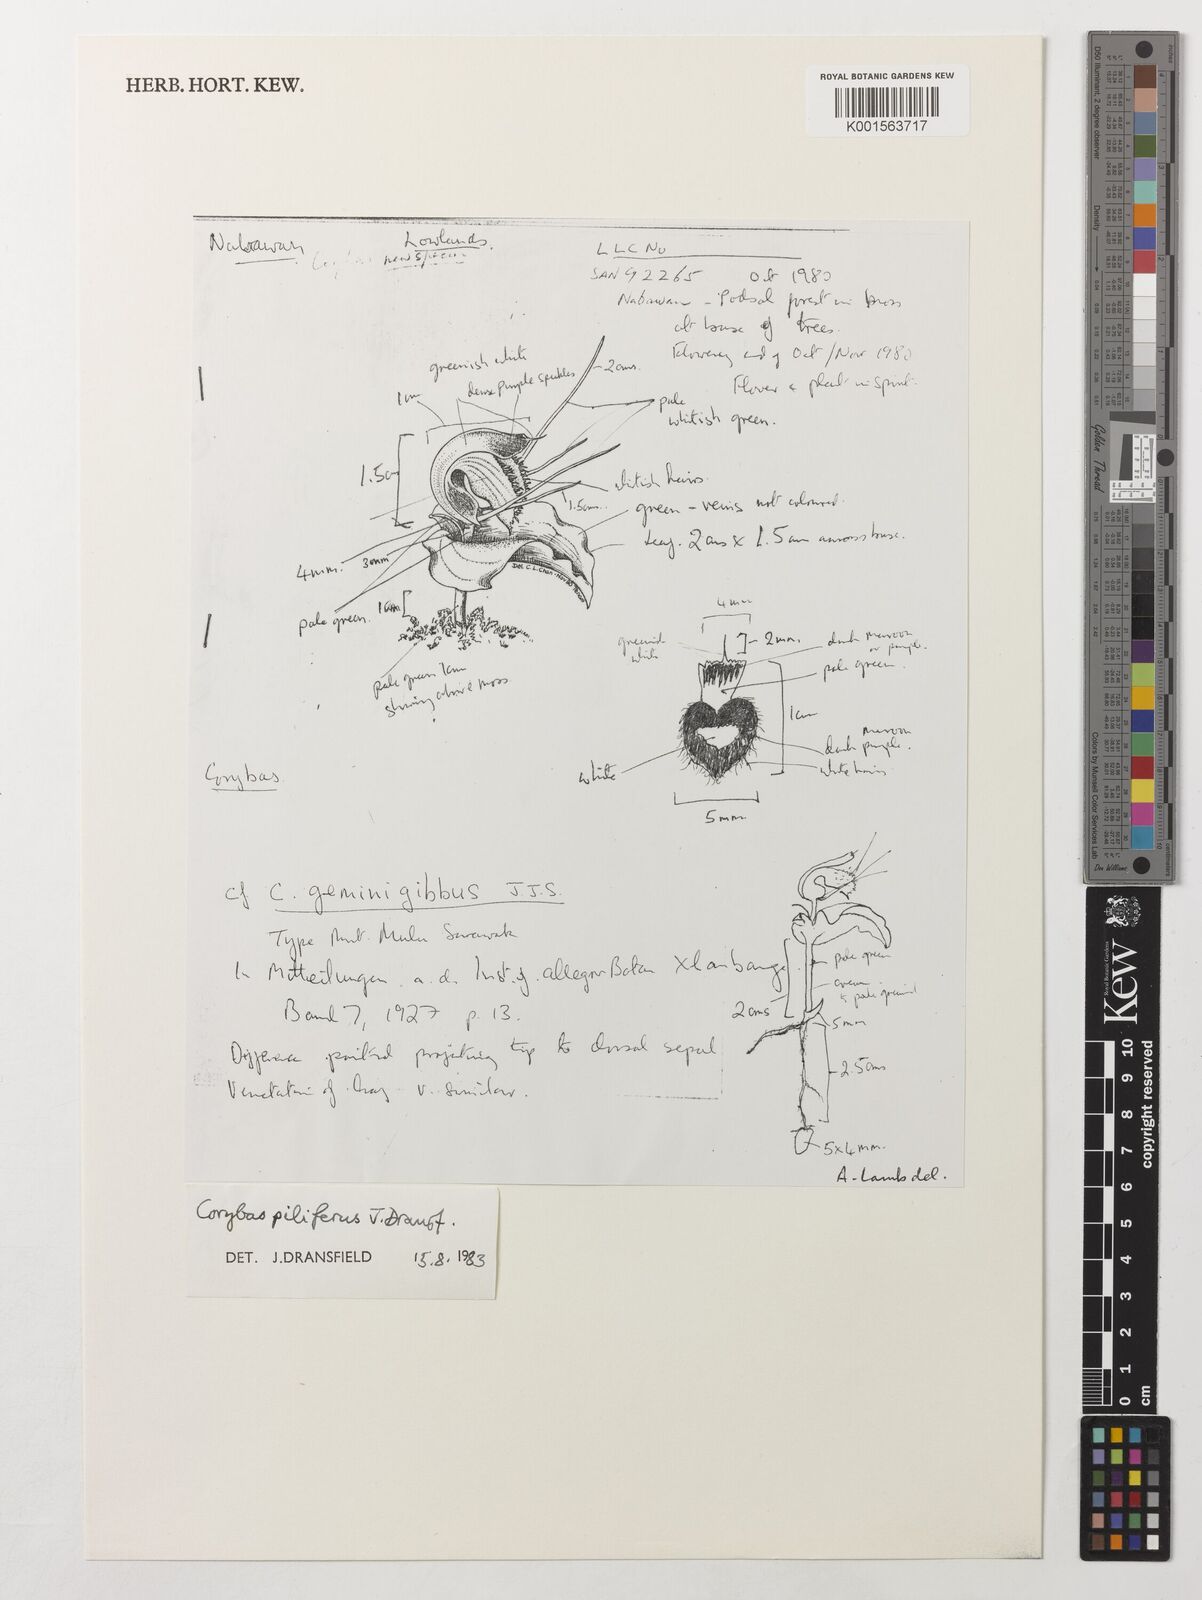 HERB. HORT. KEW.
ROYAL BOTANIC GARDENS KEW
K001563717
Nabawan
Lowlands.
new species
LLC No
SAN 92265 Oct 1980
Nabawan - Podsol forest in moss
at base of trees.
Flowering end of Oct / Nov 1980
Flower & plant in spirit.
greenish white
dense purple speckles
1cm
2cms.
pale
whitish green.
1.5cm
whitish hairs.
1.5cms.
green - veins not coloured.
Leaf. 2cms x 1.5cm across base.
4mm. 3mm
Del. C.L. Chan
pale green. 1cm
pale green 1cm
showing above moss
4mm
greenish
white
2mm.
dark maroon
or purple.
pale green.
1cm
maroon
dark purple.
white hairs
white
5mm
Corybas
cf C. geminigibbus J.J.S.
Type Mnt. Mulu Sarawak
In Mitteilungen. a. d. Inst. f. allegm Botan
Band 7, 1927 p. 13.
Difference pointed projecting tip to dorsal sepal
Venetation of leaf - v. similar.
pale green
cream
to pale greenish
2cms
5mm
2.5cms
5x4mm.
A. Lamb del.
Corybas piliferus J. Dransf.
DET. J. DRANSFIELD 15.8.1983
Kew
Royal Botanic Gardens
copyright reserved
0 1 2 3 4 5 6 7 8 9 10
cm
D50 Illuminant, 2 degree observer
Density
Golden Thread
Colors by Munsell Color Services Lab
Don Williams
inches
centimetres